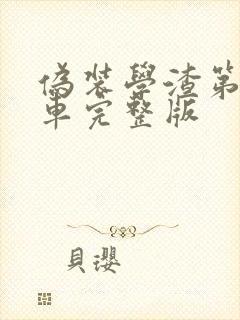 偽裝學渣第
車完整版
貝瓔